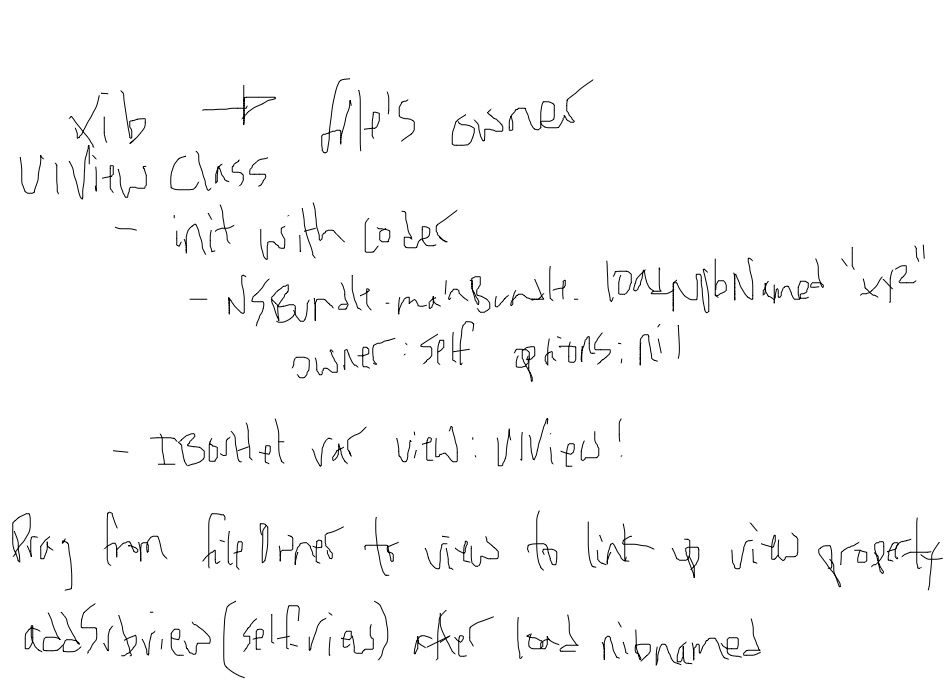 xib → file's owner
UIView Class
- init with coder
- NSBundle.mainBundle.loadNibNamed "xyz"
owner:self options:nil
- IBOutlet var view: UIView!
Drag from fileOwner to view to link up view property
addSubview(self.view) after load nibnamed